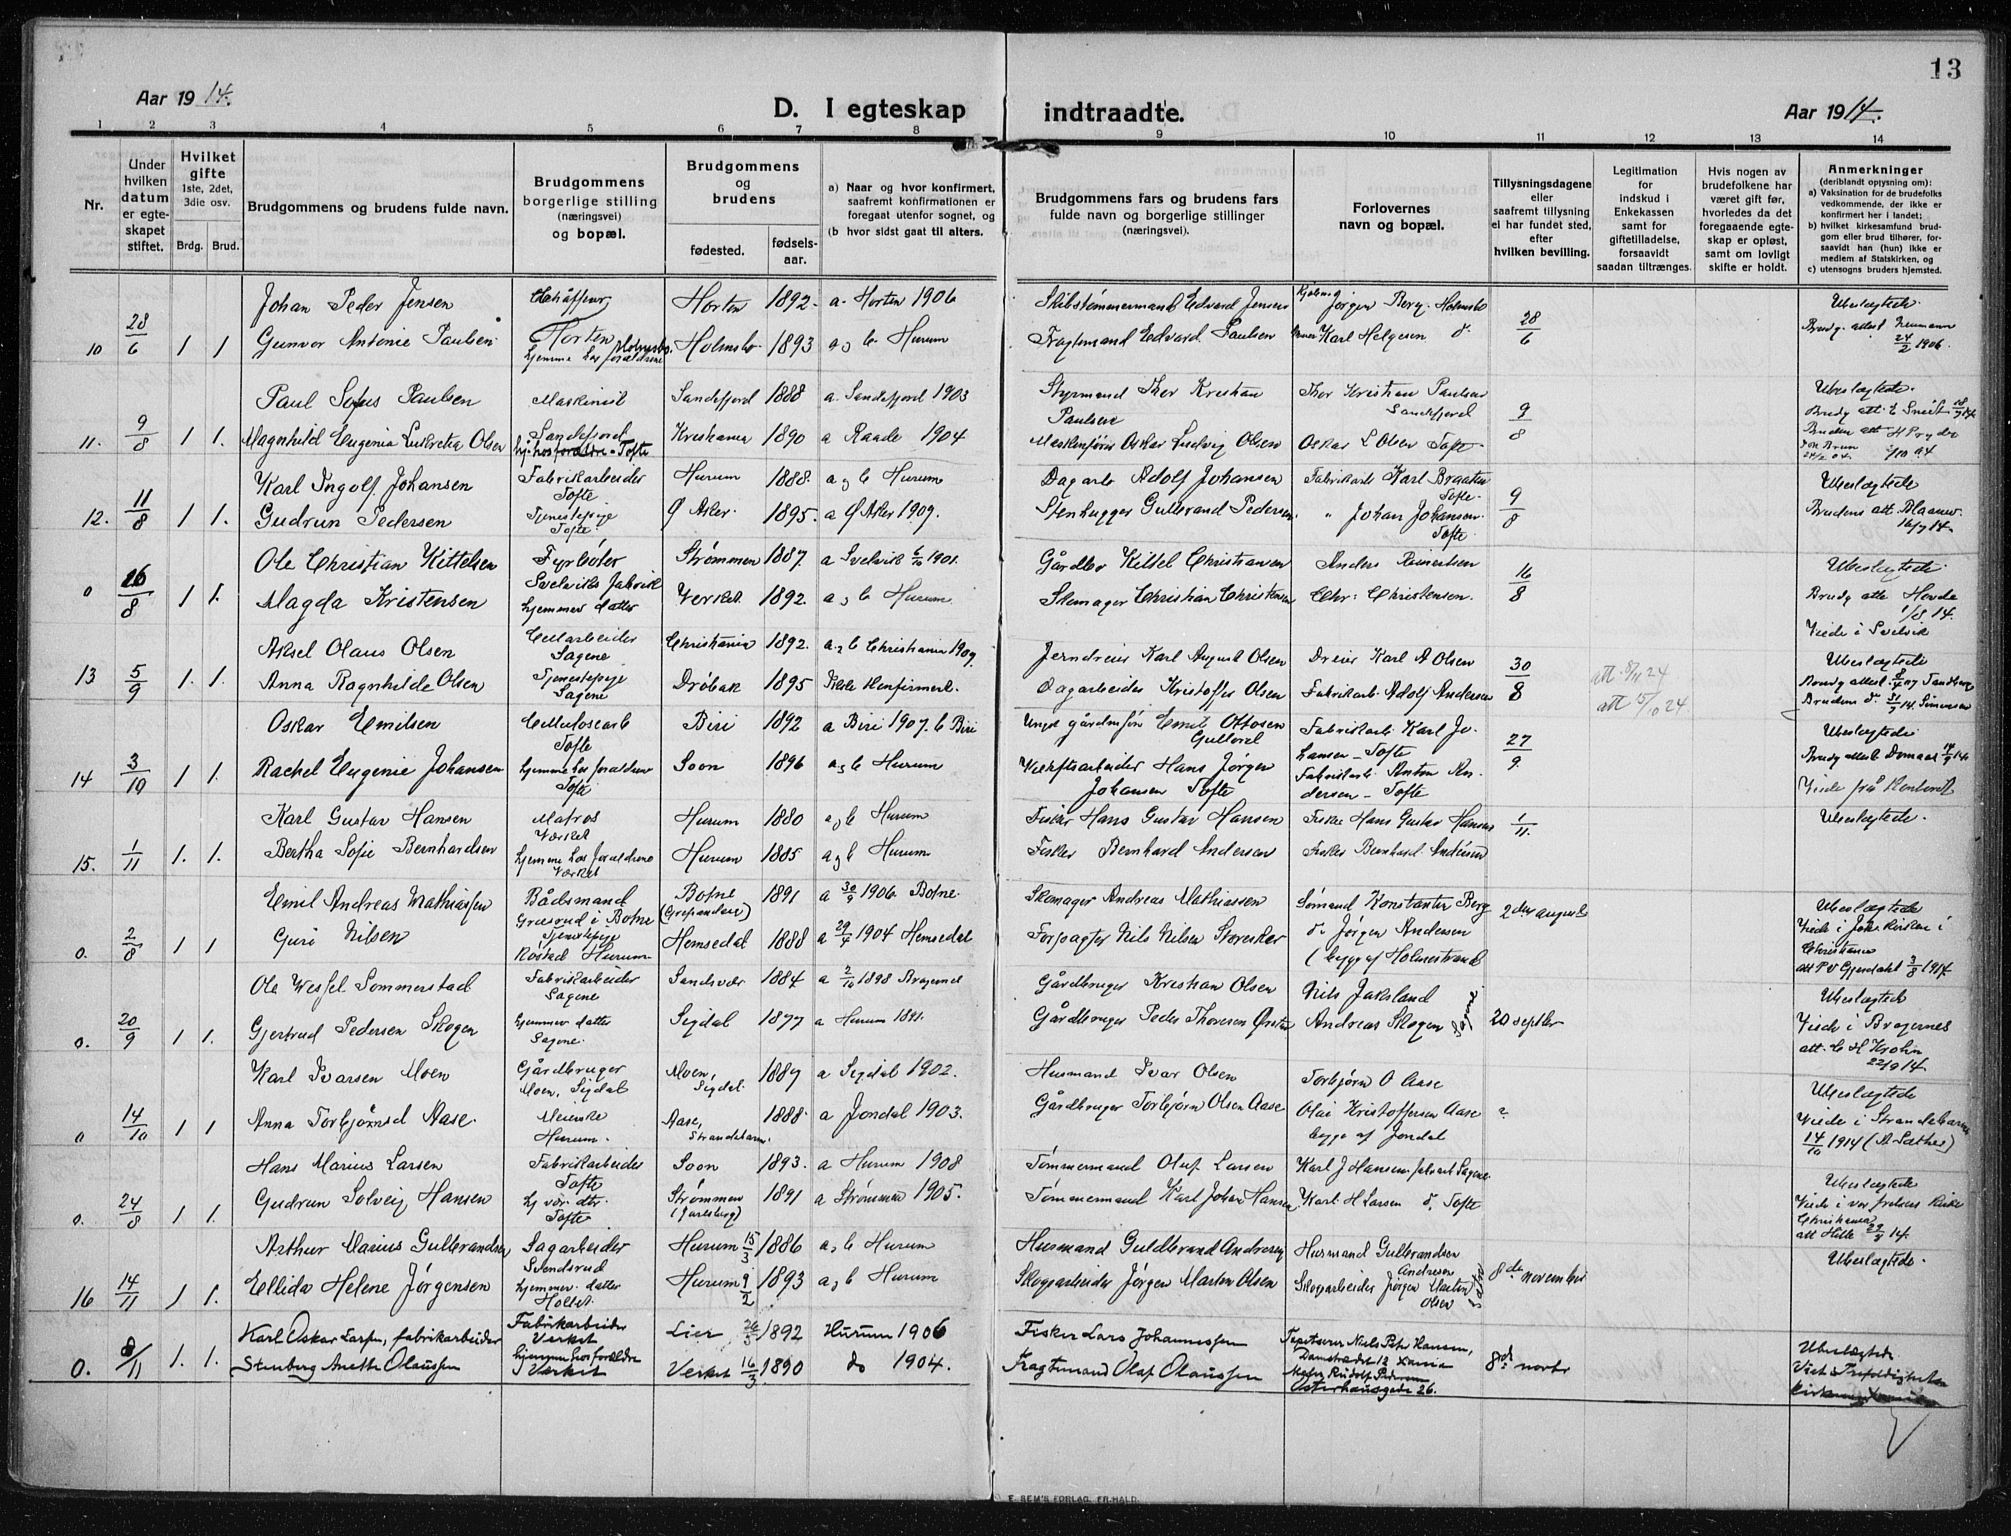 13
Aar 1914.
D. I egteskap indtraadte.
Aar 1914.
1 2 3 4 5 6 7 8 9 10 11 12 13 14
Nr.
Under hvilken datum er egteskapet stiftet.
Hvilket gifte 1ste, 2det, 3die osv.
Brdg. Brud.
Brudgommens og brudens fulde navn.
Brudgommens borgerlige stilling (næringsvei) og bopæl.
Brudgommens og brudens
fødested.
fødselsaar.
a) Naar og hvor konfirmert, saafremt konfirmationen er foregaat utenfor sognet, og
(b hvor sidst gaat til alters.
Brudgommens fars og brudens fars fulde navn og borgerlige stillinger (næringsvei).
Forlovernes navn og bopæl.
Tillysningsdagene eller saafremt tillysning ei har fundet sted, efter hvilken bevilling.
Legitimation for indskud i Enkekassen samt for giftetilladelse, forsaavidt saadan tiltrænges.
Hvis nogen av brudefolkene har været gift før, hvorledes da det foregaaende egteskap er opløst, samt om lovligt skifte er holdt.
Anmerkninger (deriblandt opjysning om):
a) Vaksination for de brudefolks vedkommende, der ikke er konfirmert her i landet;
b) hvilket kirkesamfund brudgom eller brud tilhører, forsaavidt han (hun) ikke er medlem af Statskirken, og
c) utensogns bruders hjemsted.
Johan Peder Jensen Horten 1892. a. Horten 1906 Skibstømmermand Edvard Jensen Jørgen Berg Holmsbo Ubeslægtede.
10 28/6 1 1 Gunvor Antonie Paulsen Horten hjemme hos forældrene Holmsbo 1893 a og b. Hurum Fragtemand Edvard Paulsen Karl Helgesen d. 28/6 24/2 1906.
Paul Sofus Paulsen Maskinist Sandefjord 1888 a. Sandefjord 1903 Styrmand Thor Kristian Paulsen Thor Kristian Paulsen Sandefjord Ubeslægtede.
11. 9/8 1 1. Magnhild Eugenia Lukretia Olsen Sandefjord Tofte Kristiania 1890 a Raade 1904 Oskar Ludvig Olsen Oskar L Olsen Tofte 9/8
Karl Ingolf Johansen Fabrikarbeider Tofte Hurum 1888. a og b Hurum Dagarb Adolf Johansen Fabrikarb Karl Braaten Tofte. Ubeslægtede
12. 11/8 1 1. Gudrun Pedersen Tjenestepige Tofte Ø Aker 1895. a Ø Aker 1909. Stenhugger Gulbrand Pedersen " Johan Johansen Tofte 9/8 Brudens att. Blaauw 16/7 14.
Ole Christian Kittelsen Fyrbøter Svelviks fabrik Strømmen 1887. a Svelvik 6/10 1901. Gårdbr Kittel Christiansen Anders Reinertsen Ubeslægtede.
0 26/8 1 1. Magda Kristensen hjemmev datter Verket. 1892. a og b Hurum Skomager Christian Christensen Chr. Christensen. 16/8 Brudg att Hovde 1/8 14. Viede i Svelvik
Aksel Olaus Olsen Cellarbeider Sagene Christiania 1892. a og b Christiania 1907. Jerndreier Karl August Olsen Dreier Karl A Olsen Ubeslægtede
13 5/9 1. 1. Anna Ragnhilde Olsen Tjenestepige Sagene Drøbak 1895 Ikke Konfirmert. Dagarbeider Kristoffer Olsen Fabrikarb. Adolf Andersen 30/8 att. 8/11 24 att 15/10 24
Oskar Emilsen Cellulosearb Tofte Biri 1892 a Biri 1907. b Biri Emil Ottosen Fabrikarb Karl Johansen - Tofte Ubeslægtede.
14 3/10 1 1. Rachel Eugenie Johansen hjemme hos forældrene Tofte Soon 1896 a og b Hurum Verkstsarbeider Hans Jørgen Johansen Tofte Fabrikarb. Anton Andersen - Tofte 27/9. Viede på Kontoret
Karl Gustav Hansen Matros Verket Hurum 1880 a og b Hurum Fisker Hans Gustav Hansen Fisker Hans Gustav Hansen Ubeslægtede.
15. 1/11 1. 1. Bertha Sofie Bernhardsen hjemme hos forældrene Verket Hurum 1885 a og b Hurum Fisker Bernhard Andersen Fisker Bernhard Andersen 1/11.
Emil Andreas Mathiassen Bådsmand Botne 1891 a 30/9 1906 Botne. Skomager Andreas Mathiassen Sømand Konstanter Berg 2den august Ubeslægtede
0. 2/8 1 1 Guri Nilsen Tjenestepige Røstad Hurum Hemsedal 1888 a 29/4 1904 Hemsedal Forpagter Nils Nilsen Storesker d. Jørgen Andersen (begge af Holmestrand Viede i Joh. Kirken i Christiania 3/8 1914.
Ole Wessel Sommerstad Fabrikarbeider Sagene Sandsvær 1884 a 2/10 1898 Bragernes Gårdbruger Kristian Olsen Nils Jaksland Ubeslægtede
0. 20/9 1 1. Gjertrud Pedersen Skogen hjemmev datter Sagene. Sigdal 1877 a Hurum 1891. Gårdbruger Peder Thoresen Andreas Skogen Sagene 20 septbr Viede i Bragernes att. C H Krohn 22/9 14.
Karl Ivarsen Moen Gårdbruger Moen, Sigdal Moen, Sigdal. 1887 a Sigdal 1902. Husmand Ivar Olsen Torbjørn O Aase Ubeslægtede
0 14/10 1 1 Anna Torbjørnsd Aase. Meierske Hurum. Aase, Strandebarm. 1888. a Jondal 1903. Gårdbruger Torbjørn Olsen Aase Olai Kristoffersen Aase begge af Jondal ? Viede i Strandebarm 14/10 1914 (A Sæthre)
Hans Marius Larsen Fabrikarbeider Tofte Soon 1893. a Hurum 1908 Tømmermand Oluf Larsen Karl J Hansen Sagene Ubeslægtede
0. 24/8 1 1. Gudrun Solveig Hansen hj vær. dtr. Tofte Strømmen (Jarlsberg) 1891 a Strømmen 1905. Tømmermand Karl Johan Hansen Karl H Larsen d. Tofte Viede i vor frelsers Kirke Christiania
Arthur Marius Gulbrandsen Sagarbeider Stendsrud Hurum 15/3 1886 a og b Hurum Husmand Guldbrand Andresen Husmand Gulbrandsen Andresen Ubeslægtede.
16 14/11 1 1. Ellida Helene Jørgensen hjemmev. datter Holtet. Hurum 9/2 1893 a og b Hurum Skogarbeider Jørgen Martin Olsen Skogarbeider Jørgen Martin Olsen 8de november
Karl Oskar Larsen, fabrikarbeider Fabrikarbeider Verket Lier 26/3 1892 Hurum 1906 Fisker Lars Johannessen Tapetserer Niels Petr Hansen, Damstrædet 12 Xania Ubeslægtede
0. 8/11 1. 1. Stenberg Anette Olaussen hjemme hos forældre Verket Verket 16/3 1890 do 1904. Fragtemand Olaf Olaussen Rudolf Pedersen Osterhausgade 26. 8de novbr Viet i Trefoldigheten kirken Xania
E. SEM'S FORLAG, FR.HALD.